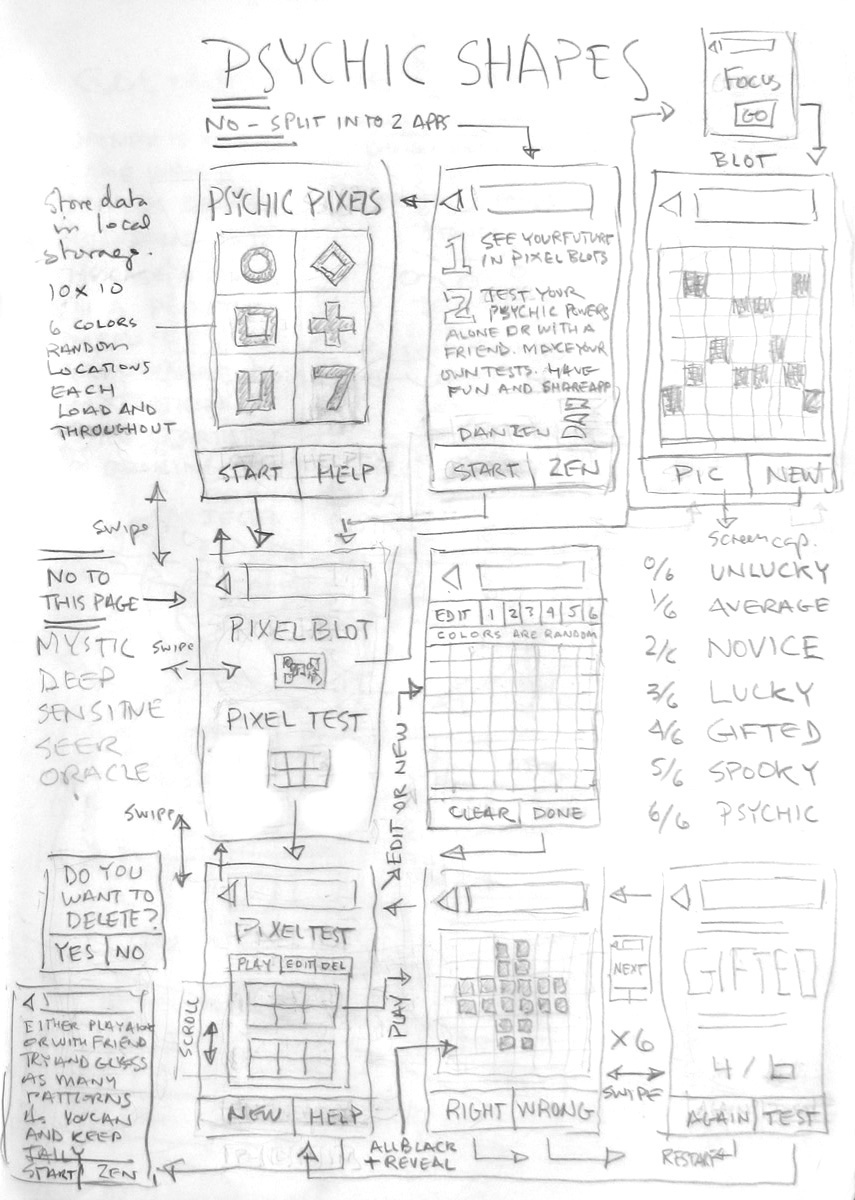 PSYCHIC SHAPES
NO - SPLIT INTO 2 APPS
FOCUS
GO
BLOT
Store data
in local
storage.
10 X 10
6 COLORS
RANDOM
LOCATIONS
EACH
LOAD AND
THROUGHOUT
PSYCHIC PIXELS
START HELP
1 SEE YOUR FUTURE
IN PIXEL BLOTS
2 TEST YOUR
PSYCHIC POWERS
ALONE OR WITH A
FRIEND. MAKE YOUR
OWN TESTS. HAVE
FUN AND SHARE APP
DAN ZEN
START ZEN
PIC NEW
Screen cap.
Swipe
NO TO
THIS PAGE
MYSTIC
DEEP
SENSITIVE
SEER
ORACLE
SWIPE
PIXEL BLOT
PIXEL TEST
EDIT 1 2 3 4 5 6
COLORS ARE RANDOM
CLEAR DONE
EDIT OR NEW
0/6 UNLUCKY
1/6 AVERAGE
2/6 NOVICE
3/6 LUCKY
4/6 GIFTED
5/6 SPOOKY
6/6 PSYCHIC
SWIPE
DO YOU
WANT TO
DELETE?
YES NO
EITHER PLAY ALONE
OR WITH FRIEND
TRY AND GUESS
AS MANY
PATTERNS
AS YOU CAN
AND KEEP
TALLY
START ZEN
PIXEL TEST
PLAY EDIT DEL
SCROLL
NEW HELP
PLAY
ALL BLACK
+ REVEAL
RIGHT WRONG
NEXT
X6
SWIPE
GIFTED
4/6
AGAIN TEST
RESTART